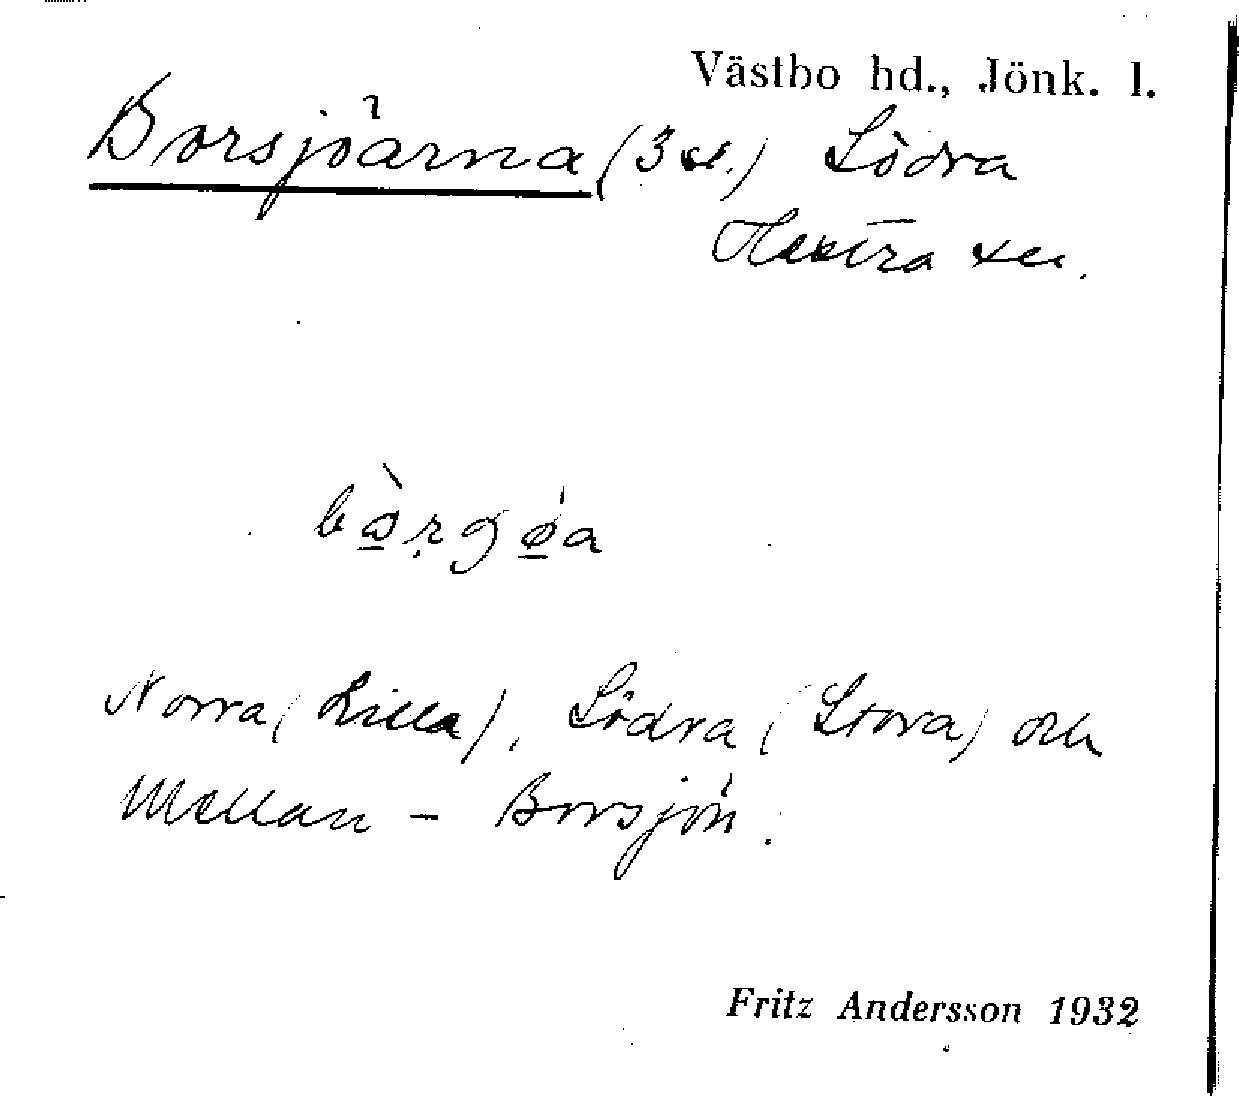 Västbo hd., Jönk. l.
Borsjöarna (3 st.) Södra
Hestra sn.
bòrgøa
Norra (Lilla), Södra (Stora) och
Mellan - Borsjön.
Fritz Andersson 1932